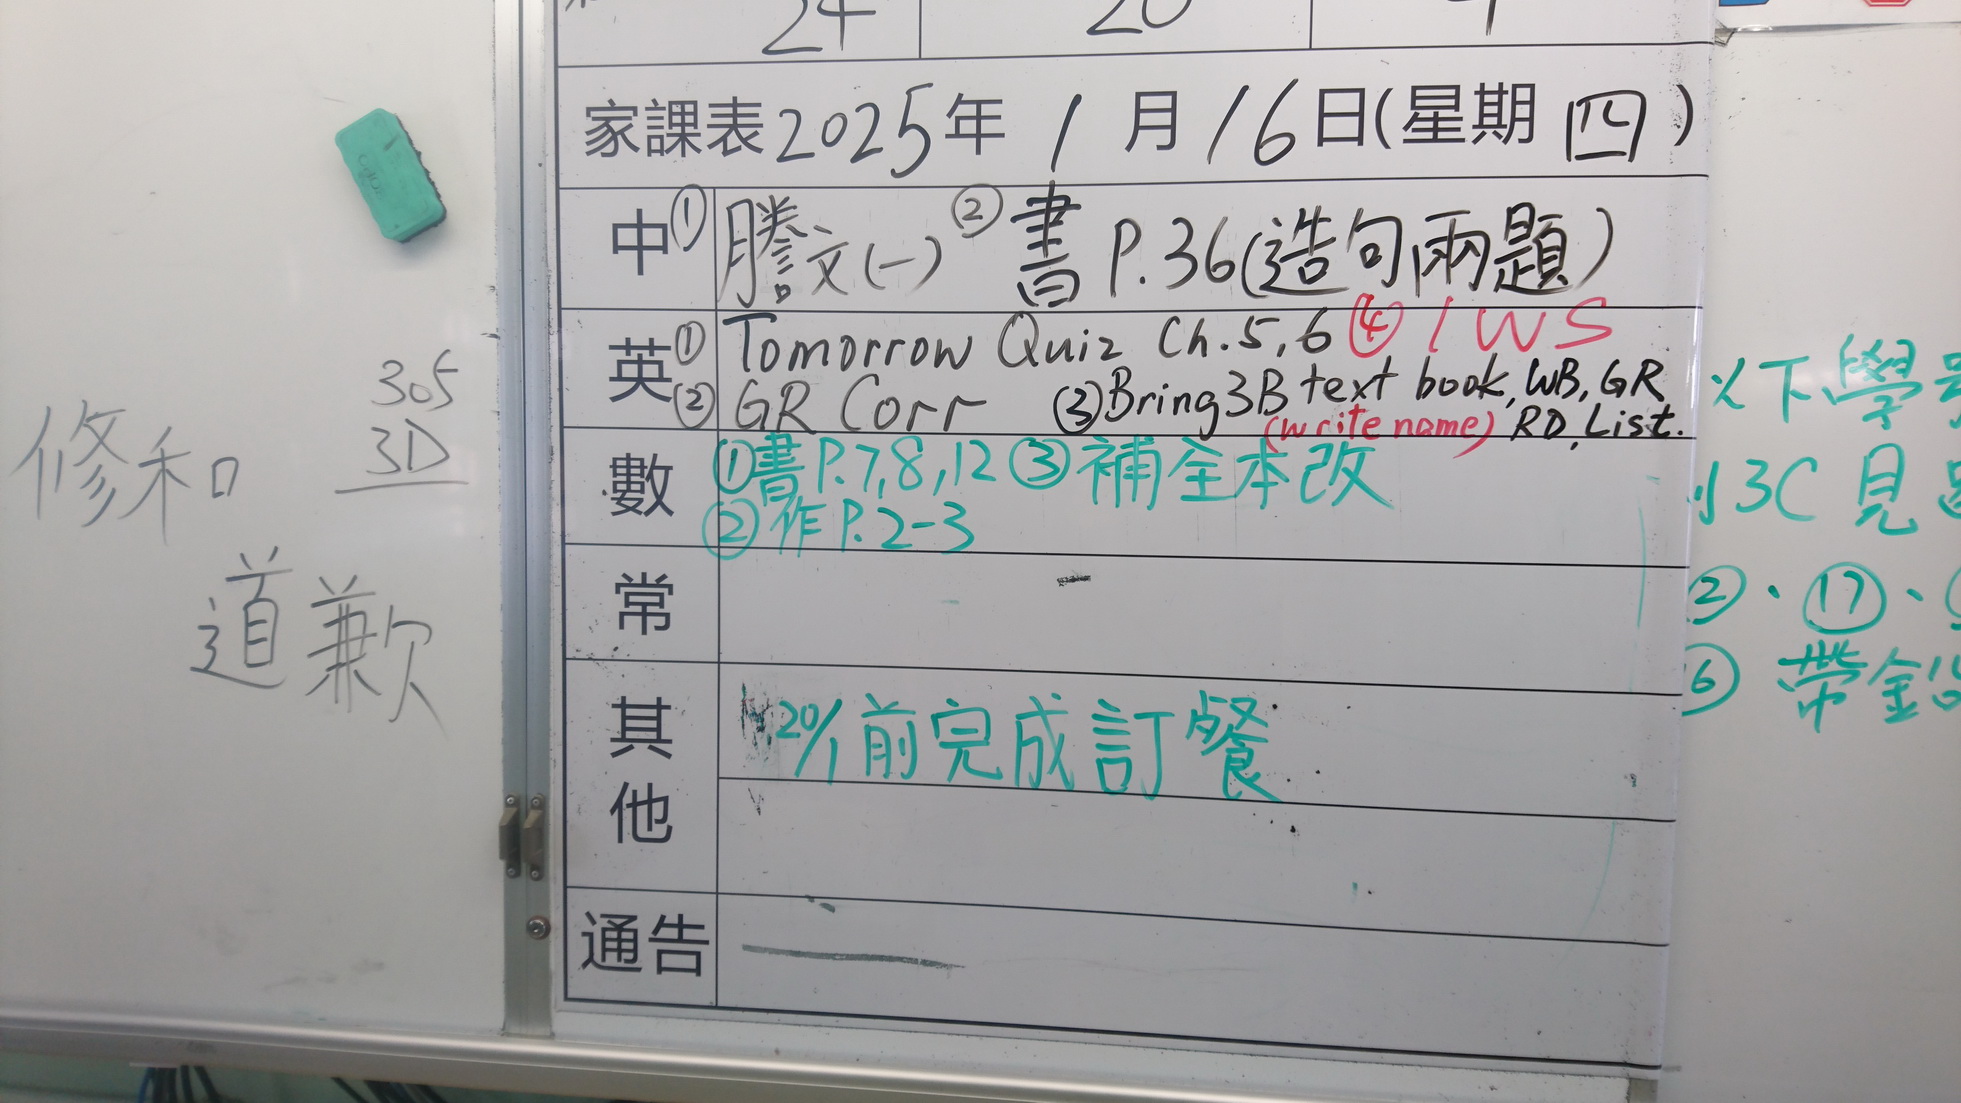 24 20 4
家課表2025年1月16日(星期四)
中 ①謄文(一) ②書P.36(造句兩題)
英 ①Tomorrow Quiz Ch.5,6 ④1WS
②GR Corr ③Bring3B text book,WB,GR
(write name) RD,List.
數 ①書P.7,8,12 ③補全本改
②作P.2-3
常
其他 20/1前完成訂餐
通告
305
3D
修和
道歉
以下學
3C見
②、⑰、
⑥ 帶